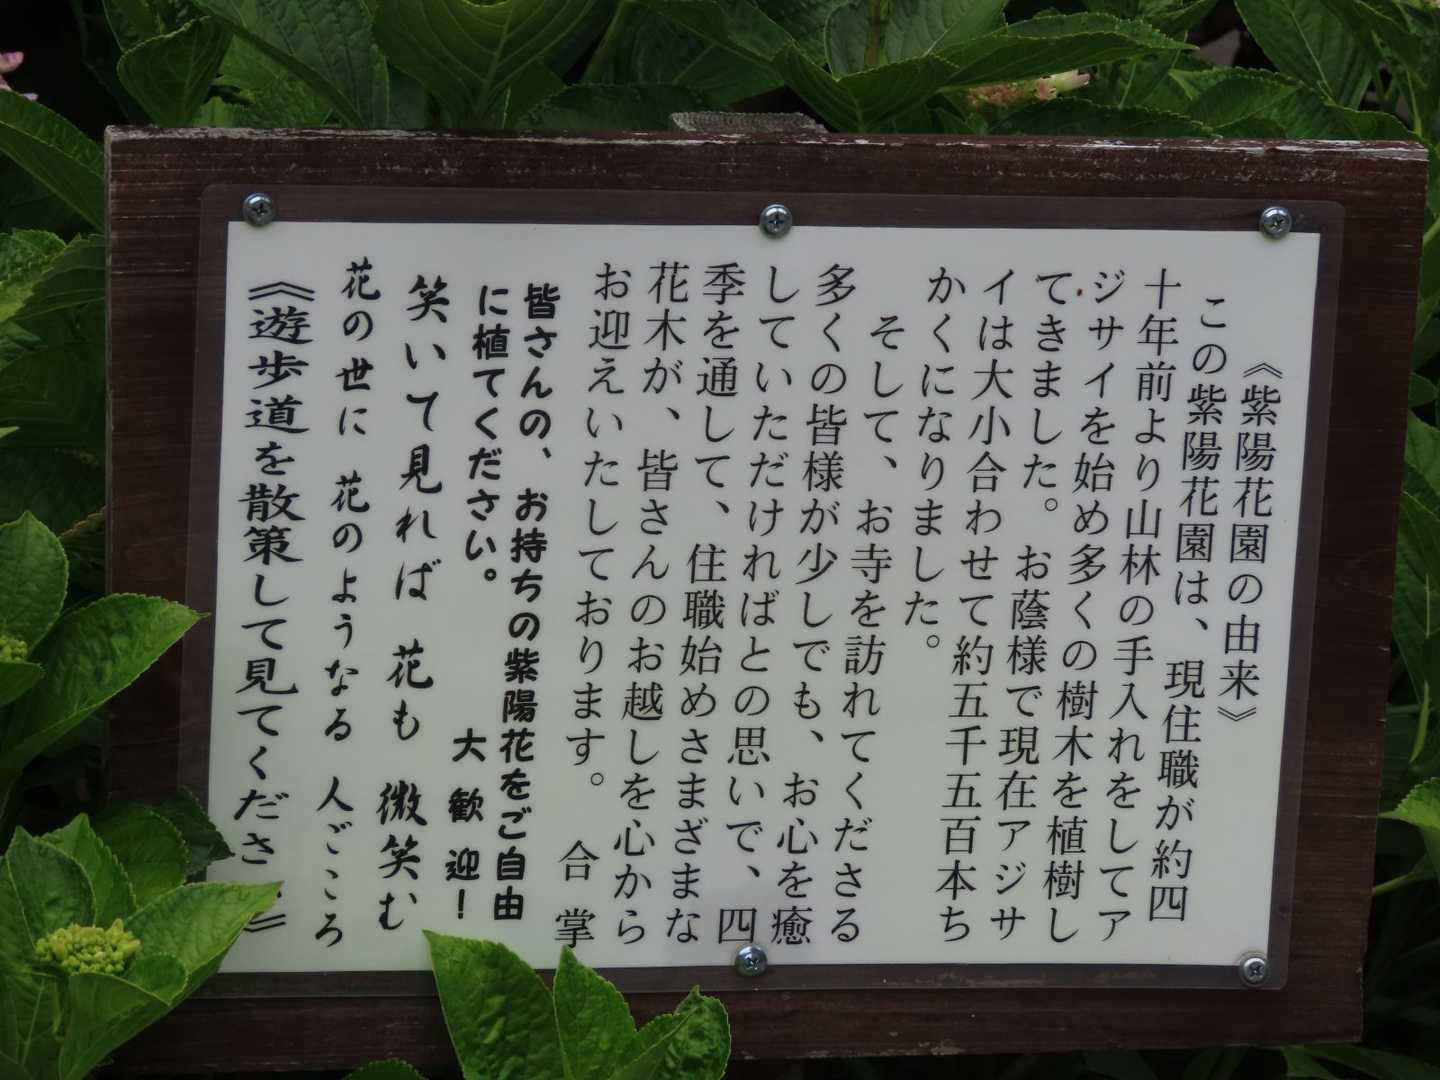 《紫陽花園の由来》
この紫陽花園は、現住職が約四
十年前より山林の手入れをしてア
ジサイを始め多くの樹木を植樹し
てきました。お蔭様で現在アジサ
イは大小合わせて約五千五百本ち
かくになりました。
そして、お寺を訪れてくださる
多くの皆様が少しでも、お心を癒
していただければとの思いで、四
季を通して、住職始めさまざまな
花木が、皆さんのお越しを心から
お迎えいたしております。 合掌
皆さんの、お持ちの紫陽花をご自由
に植てください。 大歓迎!
笑いて見れば 花も 微笑む
花の世に 花のようなる 人ごころ
《遊歩道を散策して見てくださ 》